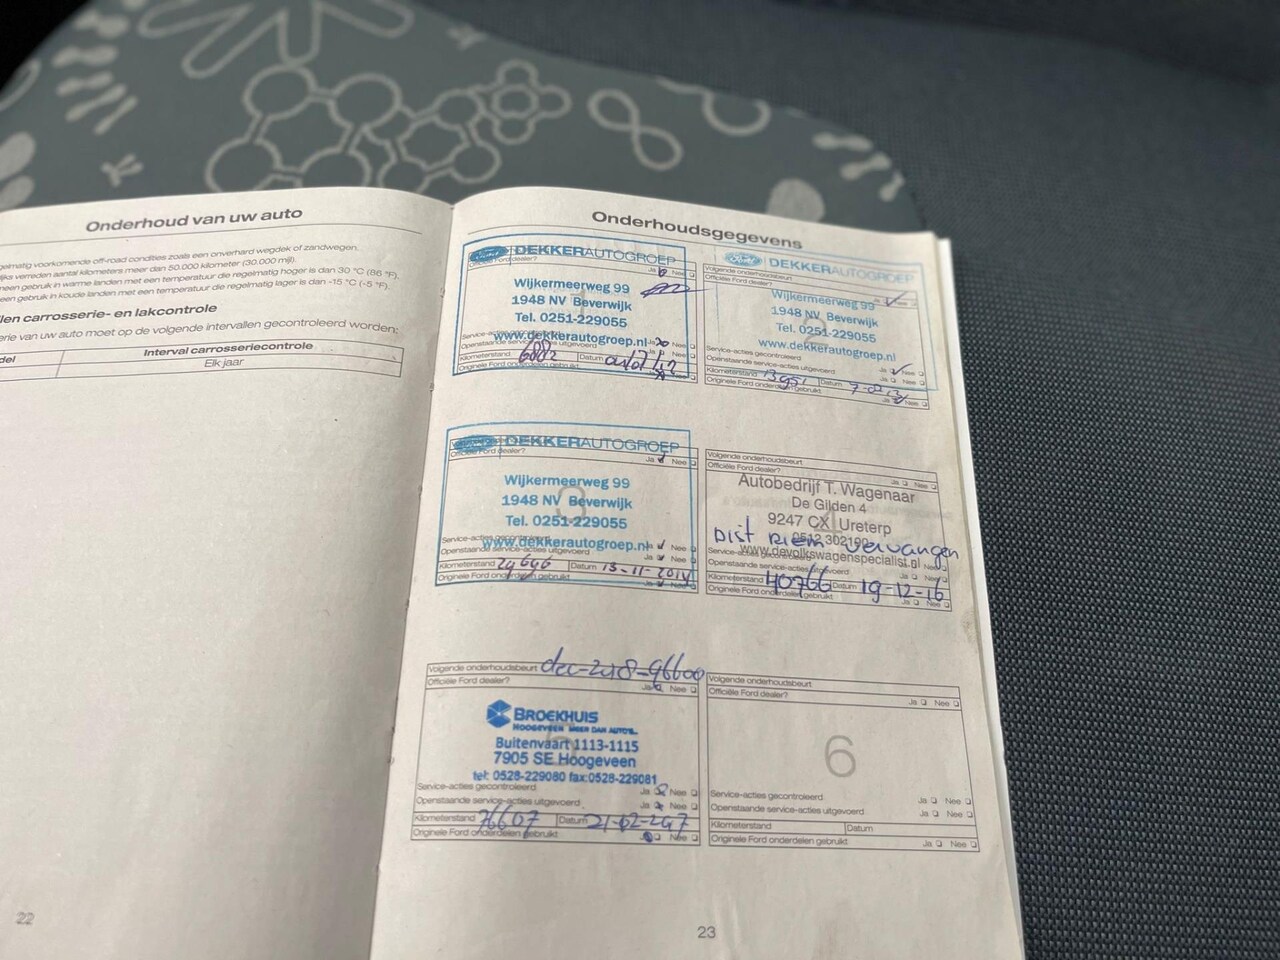 Onderhoud van uw auto
gelmatig voorkomende off-road condities zoals een onverhard wegdek of zandwegen.
lijks verreden aantal kilometers meer dan 50.000 kilometer (30.000 mijl).
neen gebruik in warme landen met een temperatuur die regelmatig hoger is dan 30 °C (86 °F).
neen gebruik in koude landen met een temperatuur die regelmatig lager is dan -15 °C (-5 °F).
len carrosserie- en lakcontrole
erie van uw auto moet op de volgende intervallen gecontroleerd worden:
del
Interval carrosseriecontrole
Elk jaar
22
Onderhoudsgegevens
Ford DEKKERAUTOGROEP
Officiële Ford dealer?
Ja Nee
Wijkermeerweg 99
1948 NV Beverwijk
Tel. 0251-229055
www.dekkerautogroep.nl
Kilometerstand Datum
Originele Ford onderdelen gebruikt
Ford DEKKERAUTOGROEP
Volgende onderhoudsbeurt
Officiële Ford dealer?
Ja Nee
2
Wijkermeerweg 99
1948 NV Beverwijk
Tel. 0251-229055
www.dekkerautogroep.nl
Service-acties gecontroleerd
Ja Nee
Openstaande service-acties uitgevoerd
Ja Nee
Kilometerstand Datum
Originele Ford onderdelen gebruikt
Ja Nee
Ford DEKKERAUTOGROEP
Officiële Ford dealer?
Ja Nee
3
Wijkermeerweg 99
1948 NV Beverwijk
Tel. 0251-229055
www.dekkerautogroep.nl
Nee
Openstaande service-acties uitgevoerd
Nee
Kilometerstand 29646 Datum 13-11-2014
Originele Ford onderdelen gebruikt
Nee
Volgende onderhoudsbeurt
Officiële Ford dealer?
Ja Nee
4
Autobedrijf T. Wagenaar
De Gilden 4
9247 CX Ureterp
0512 302190
Dist Riem vervangen
www.devolkswagenspecialist.nl
Openstaande service-acties uitgevoerd
Ja Nee
Kilometerstand 40766 Datum 19-12-16
Originele Ford onderdelen gebruikt
Ja Nee
Volgende onderhoudsbeurt dec-2018-96600
Officiële Ford dealer?
Ja Nee
5
BROEKHUIS
HOOGEVEEN MEER DAN AUTO'S..
Buitenvaart 1113-1115
7905 SE Hoogeveen
tel: 0528-229080 fax:0528-229081
Service-acties gecontroleerd
Ja Nee
Openstaande service-acties uitgevoerd
Ja Nee
Kilometerstand 76607 Datum
Originele Ford onderdelen gebruikt
Nee
Volgende onderhoudsbeurt
Officiële Ford dealer?
Ja Nee
6
Service-acties gecontroleerd
Ja Nee
Openstaande service-acties uitgevoerd
Ja Nee
Kilometerstand Datum
Originele Ford onderdelen gebruikt
Ja Nee
23